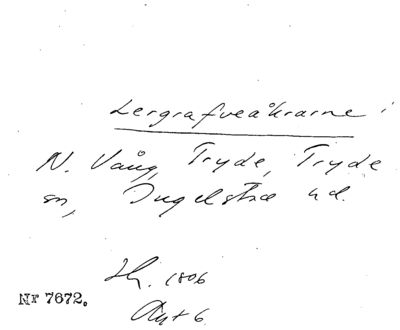 Lergrafveåkrarne
N. Vång, Tryde, Tryde
sn, Ingelstad hd.
Sk. 1806
Nr 7672.
Akt 6